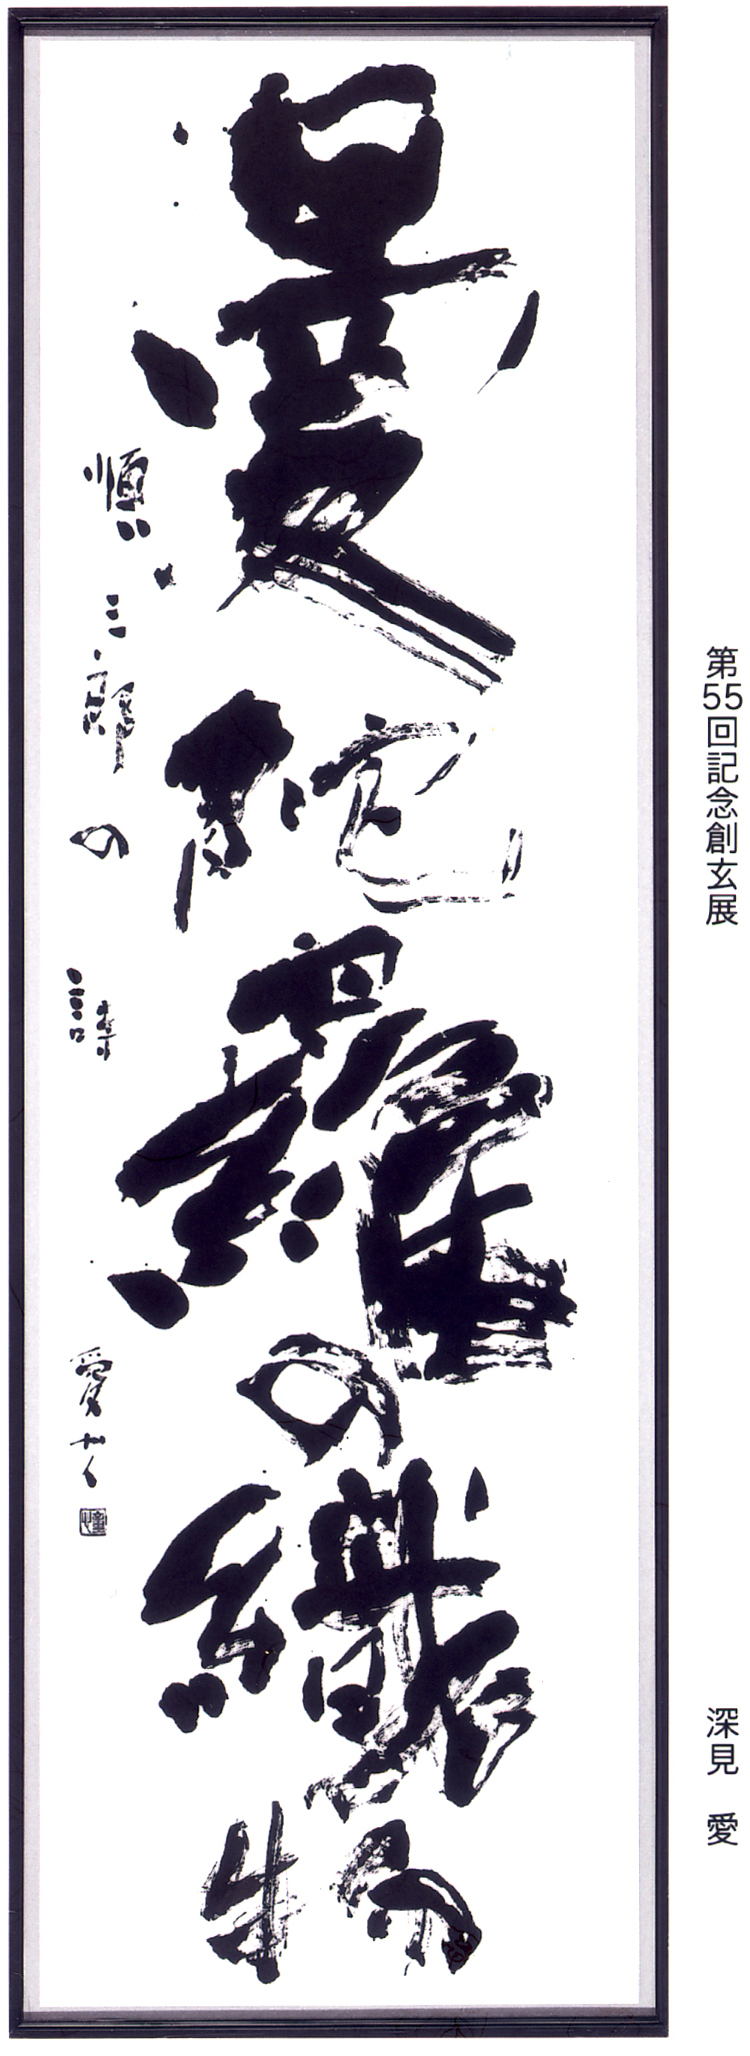 第55回記念創玄展
深見 愛
曼陀羅の織物
順三郎の詩 愛